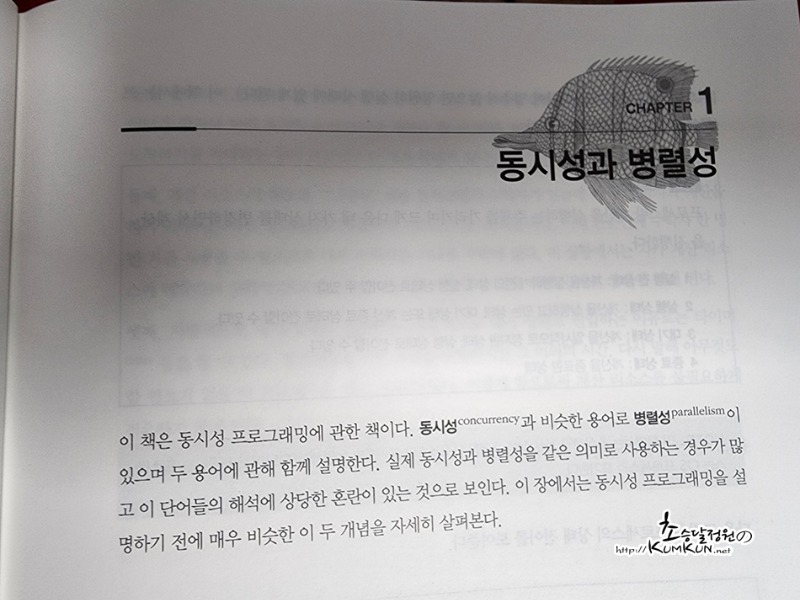 CHAPTER 1
동시성과 병렬성
이 책은 동시성 프로그래밍에 관한 책이다. 동시성concurrency과 비슷한 용어로 병렬성parallelism이
있으며 두 용어에 관해 함께 설명한다. 실제 동시성과 병렬성을 같은 의미로 사용하는 경우가 많
고 이 단어들의 해석에 상당한 혼란이 있는 것으로 보인다. 이 장에서는 동시성 프로그래밍을 설
명하기 전에 매우 비슷한 이 두 개념을 자세히 살펴본다.
초승달정원の
http://KUMKUN.net